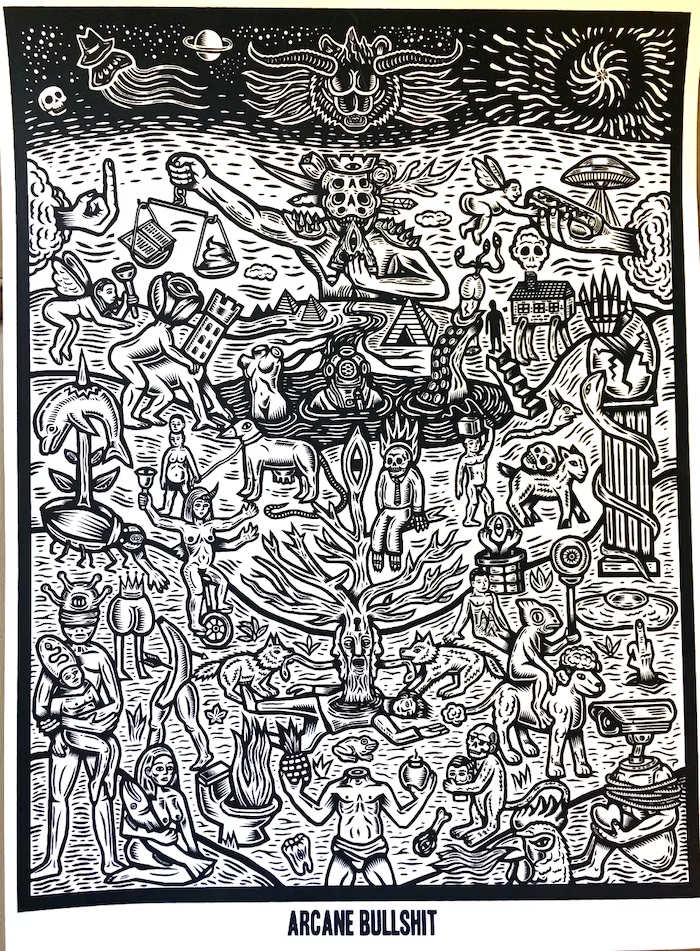 ARCANE BULLSHIT